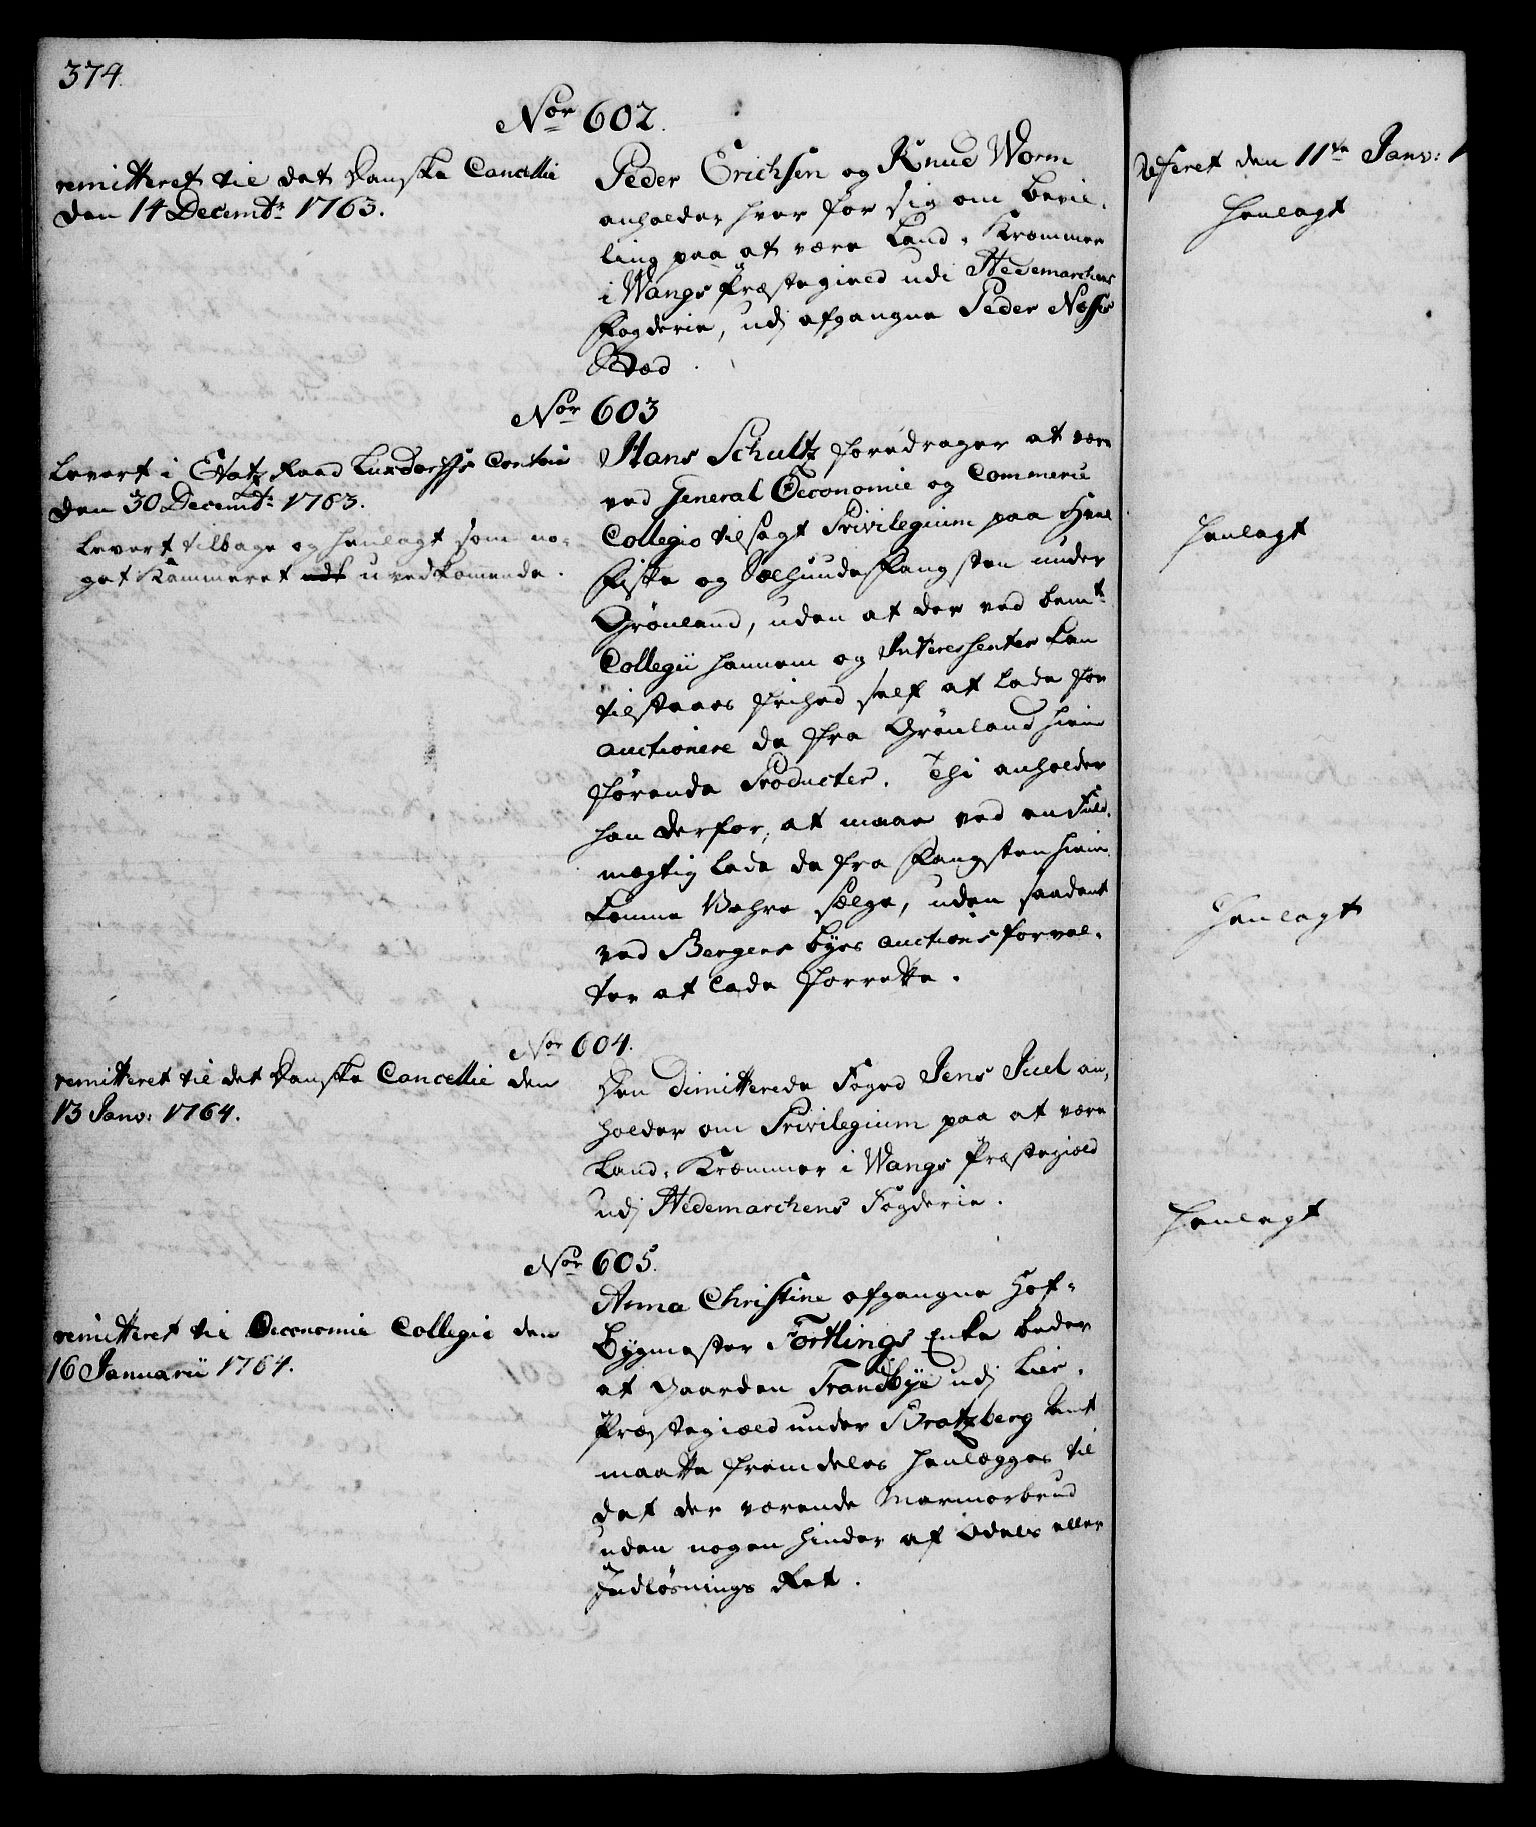 374.
Nor 602.
remitteret til det Danske Cancellie
den 14 Decembr: 1763.
Peder Erichsen og Knud Worm
anholder hver for sig om bevil-
ling paa at være Land-Kræmmer
i Wangs Præstegield udi Hedemarchens
Fogderie, udj afgangne Peder Næsses
Stæd.
Referet den 11te Janv: 1
Henlagt
Nor 603
Levert i Etatz Raad Luxdorffs Contoir
den 30 Decembr: 1763.
Levert tilbage og henlagt som no-
get Kammeret uvedkommende.
Hans Schultz foredrager at være
ved General Oeconomie og Commerce
Collegio tilsagt Privilegium paa Hval
Fiske og Sælhunde Fangsten under
Grønland, uden at der ved bemte
Collegii hannem og Interessenter kan
tilstaaes frihed self at lade for
auctionere de fra Grønland hiem
førende Producter. Thi anholder
han derfor, at maae ved en Fuld-
mægtig lade de fra Fangsten hiem
komne Vahre sælge, uden saadant
ved Bergens byes auctions forval-
ter at lade forrette.
Henlagt
Nor 604.
remitteret til det Danske Cancellie den
13 Janv: 1764.
Den Dimitterede Foged Jens Juel an-
holder om Privilegium paa at være
Land-Kræmmer i Wangs Præstegield
udj Hedemarchens Fogderie.
Henlagt
Nor 605.
remitteret til Oeconomie Collegie den
16 Januarii 1764.
Anna Christine afgangne Hof-
Bygmester Fortlings Enke beder
at Gaarden Trandbye udj Lier-
Præstegield under Bratzberg Amt
maatte fremdeles henlægges til
det der værende Marmorbrud
uden nogen hinder af Odels eller
Indløsnings Ret.
Henlagt